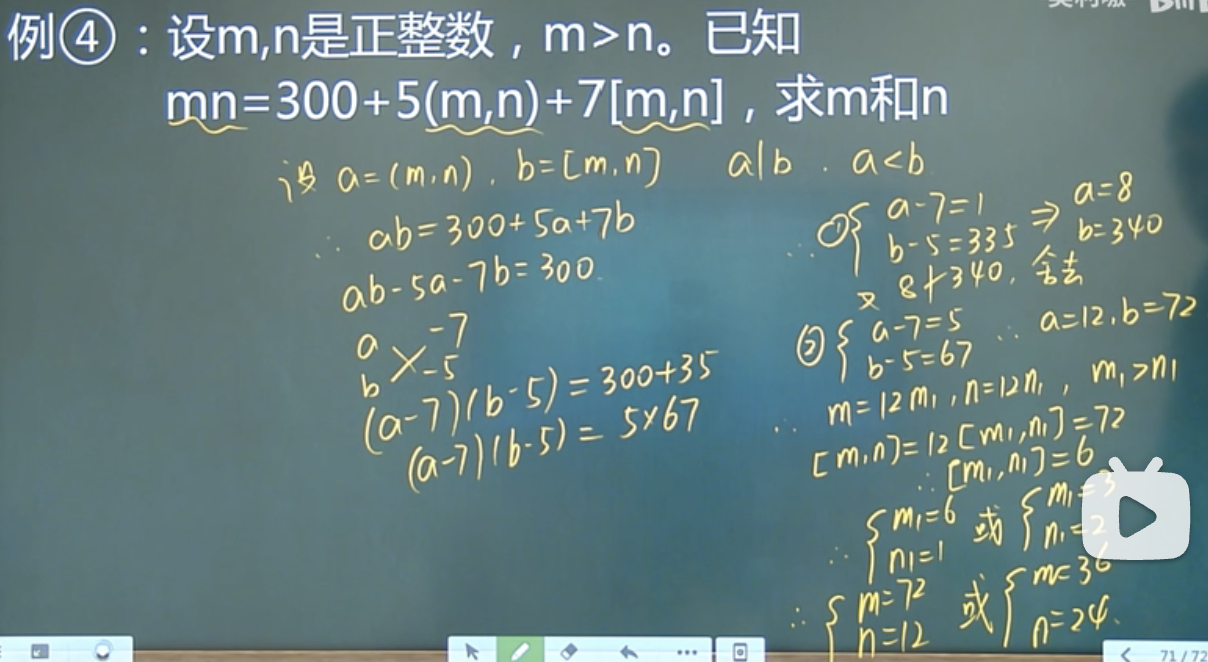 例④：设m,n是正整数，m>n。已知
mn=300+5(m,n)+7[m,n]，求m和n
设 a=(m,n)，b=[m,n] a|b . a<b
∴ ab=300+5a+7b
ab-5a-7b=300.
a -7
b -5
(a-7)(b-5)=300+35
(a-7)(b-5)=5×67
∴ ①{ a-7=1
b-5=335 ⇒ a=8
b=340
又 8∤340，舍去
② { a-7=5
b-5=67 ∴ a=12，b=72
∴ m=12m₁，n=12n₁，m₁>n₁
[m,n]=12[m₁,n₁]=72
∴ [m₁,n₁]=6
∴ { m₁=6
n₁=1 或 { m₁=3
n₁=2
∴ { m=72
n=12 或 { m=36
n=24.
71/72